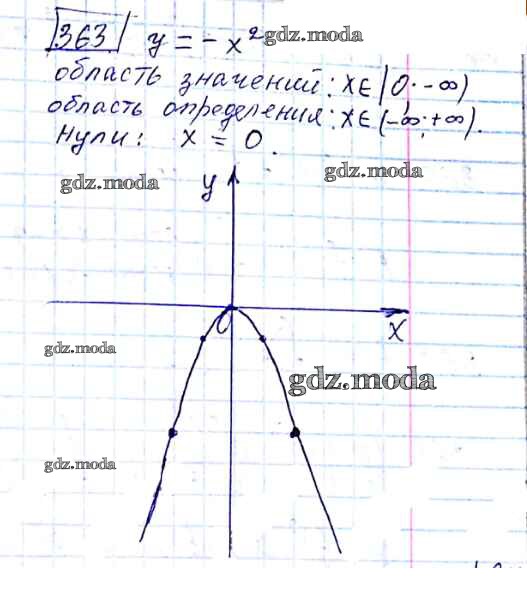 363 y = -x² gdz.moda
область значений: x∈[0; -∞)
область определения: x∈(-∞; +∞).
нули: x = 0.
gdz.moda y gdz.moda
0 x
gdz.moda
gdz.moda
gdz.moda